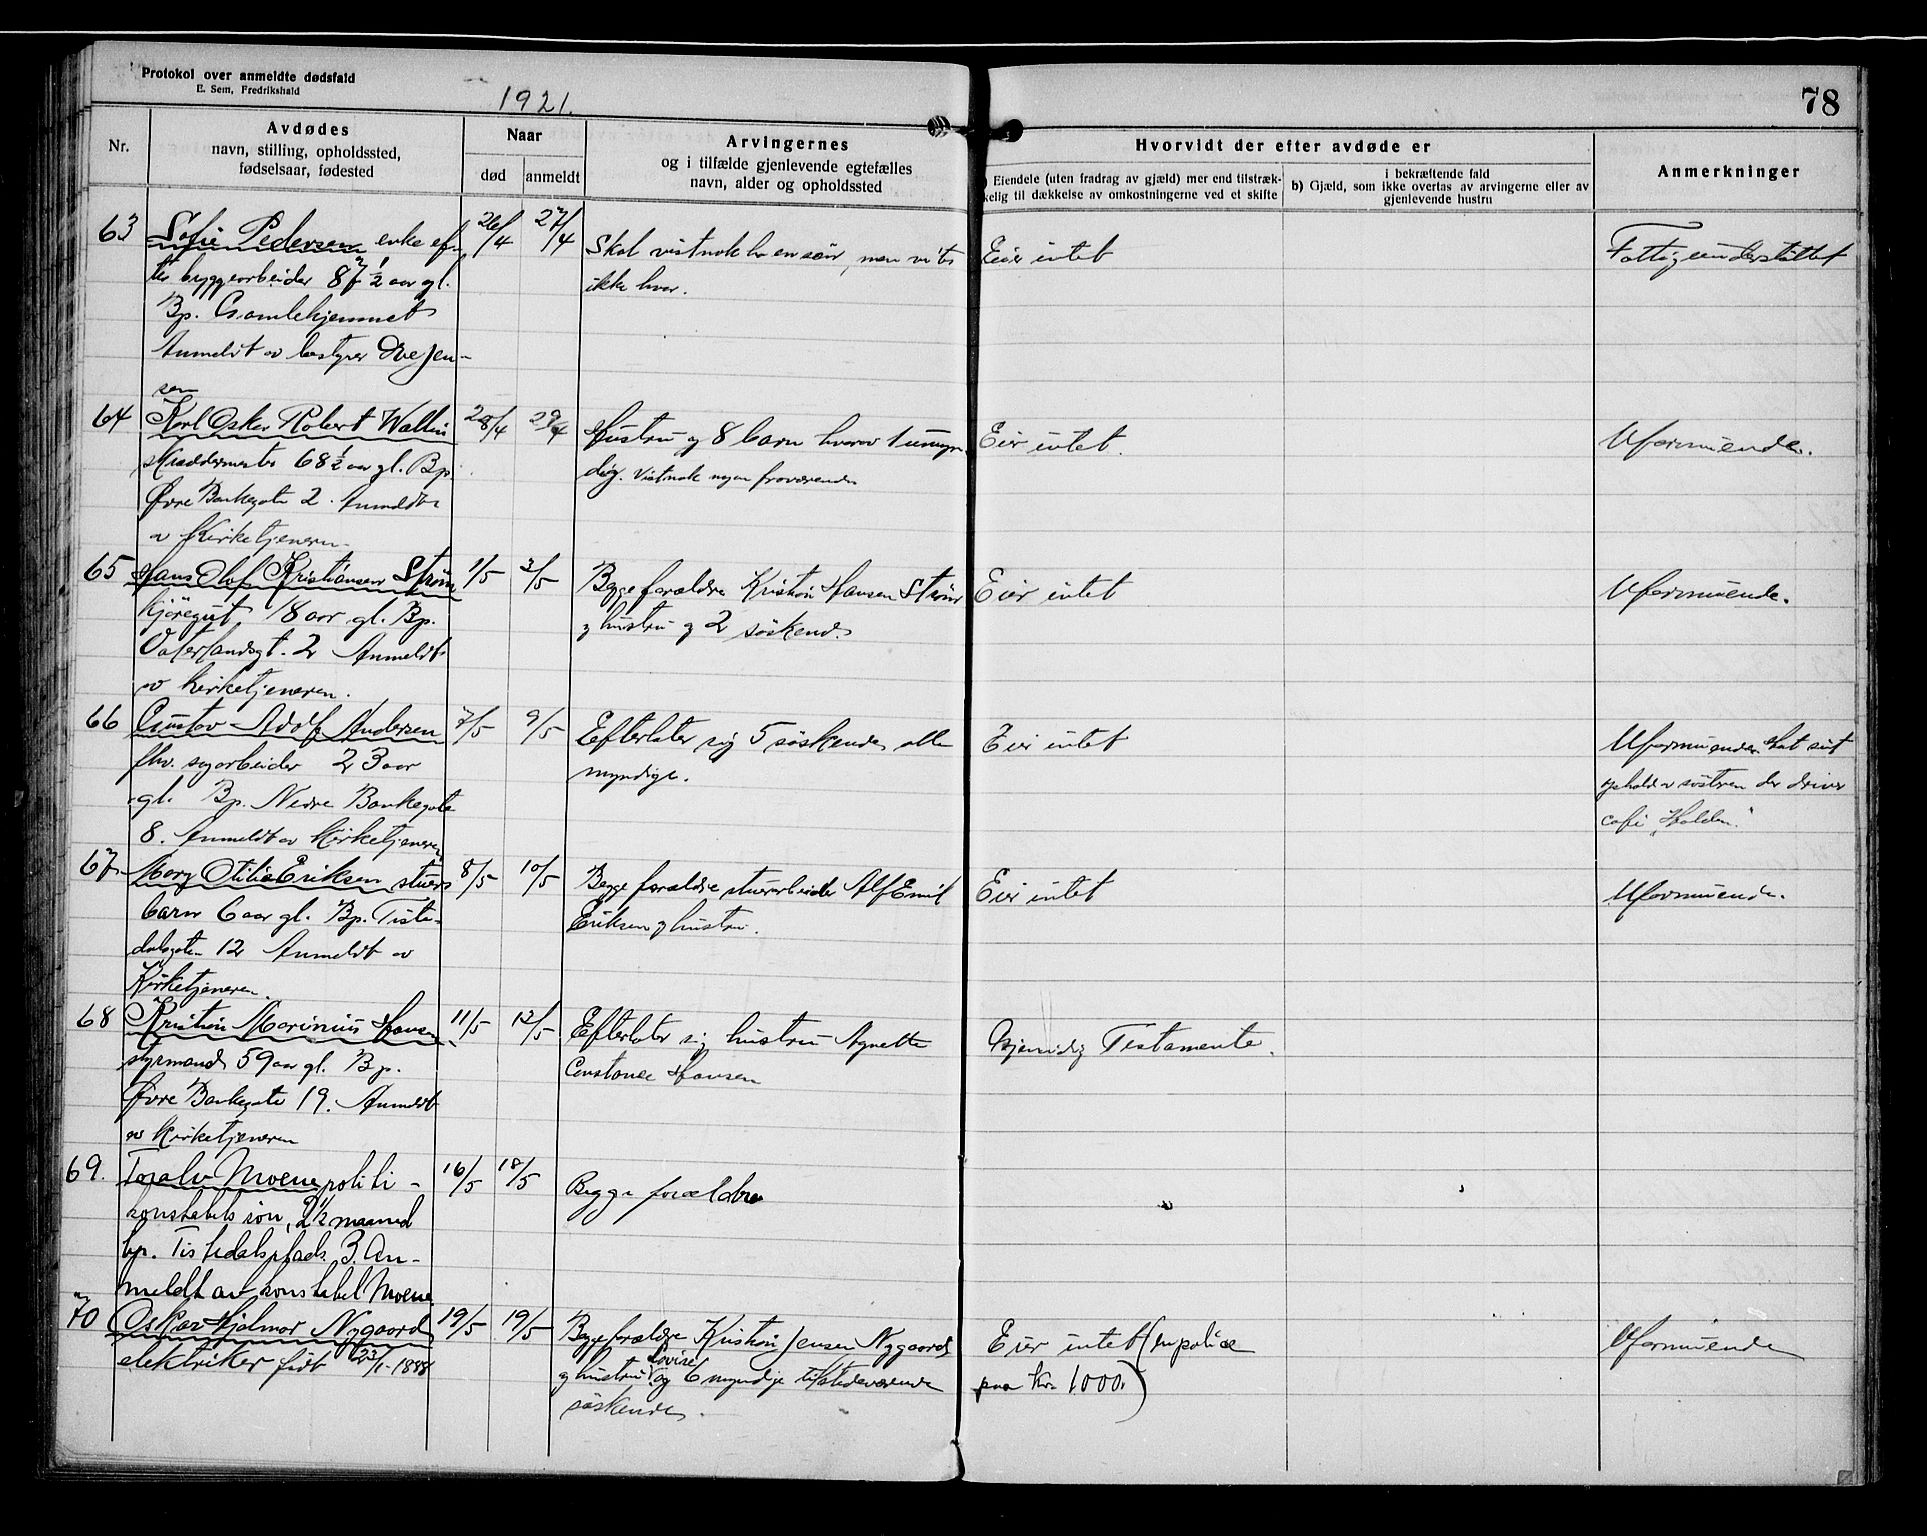 Protokol over anmeldte dødsfald
E. Sem, Fredrikshald
1921.
78
Nr.
Avdødes
navn, stilling, opholdssted,
fødselsaar, fødested
Naar
død
anmeldt
Arvingernes
og i tilfælde gjenlevende egtefælles
navn, alder og opholdssted
Hvorvidt der efter avdøde er
) Eiendele (uten fradrag av gjæld) mer end tilstræk-
kelig til dækkelse av omkostningerne ved et skifte
i bekræftende fald
b) Gjæld, som ikke overtas av arvingerne eller av
gjenlevende hustru
Anmerkninger
63
Sofie Pedersen enke ef-
ter byggearbeider 87 1/2 aar gl.
Bp. Gamlehjemmet
Anmeldt av bestyrer Ove Jen-
sen
26/4
27/4
Skal vistnok ha en søn, men vites
ikke hvor.
Eier intet
Fattigunderstøttet
64
Karl Oskar Robert Wallin
skræddermester 68 1/2 aar gl. Bp.
Øvre Bankegate 2. Anmeldt
av Kirketjeneren
28/4
29/4
Hustru og 8 barn hvorav 1 umyn-
dig. Vistnok nogen fraværende
Eier intet.
Uformuende.
65
Hans Olaf Kristiansen Strøm
kjøregut, 18 aar gl. Bp.
Vaterlandsgt. 2 Anmeldt
av kirketjeneren.
1/5
3/5
Begge forældre Kristian Hansen Strøm
og hustru og 2 søskende
Eier intet
Uformuende.
66
Gustav Adolf Andersen
fhv. sagarbeider 23 aar
gl. Bp. Nedre Bankegate
8. Anmeldt av Kirketjeneren
7/5
9/5
Efterlater sig 5 søskende alle
myndige.
Eier intet
Uformuende. Hat sit
ophold av søstren der driver
café "Halden."
67
Mary Otilie Eriksen stuers
barn 6 aar gl. Bp. Tiste-
dalsgaten 12 Anmeldt av
Kirketjeneren.
8/5
10/5
Begge forældre stuerarbeider Alf Emil
Eriksen og hustru.
Eier intet
Uformuende.
68
Kristian Marinius Hansen
styrmand 59 aar gl. Bp.
Øvre Bankegate 19. Anmeldt
av Kirketjeneren
11/5
12/5
Efterlater sig hustru Agnette
Constance Hansen
Gjensidig Testamente.
69.
Toralv Moene politi-
konstabels søn, 2 1/2 maaned
bp. Tistedalsplads 3. An-
meldt av konstabel Moene.
16/5
18/5
Begge forældre
70
Oskar Hjalmar Nygaard
elektriker født 23/1-1888
19/5
19/5
Begge forældre Kristian Jensen Nygaard
og hustru Lovise og 6 myndige tilstedeværende
søskende.
Eier intet (en police
paa kr. 1000.)
Uformuende